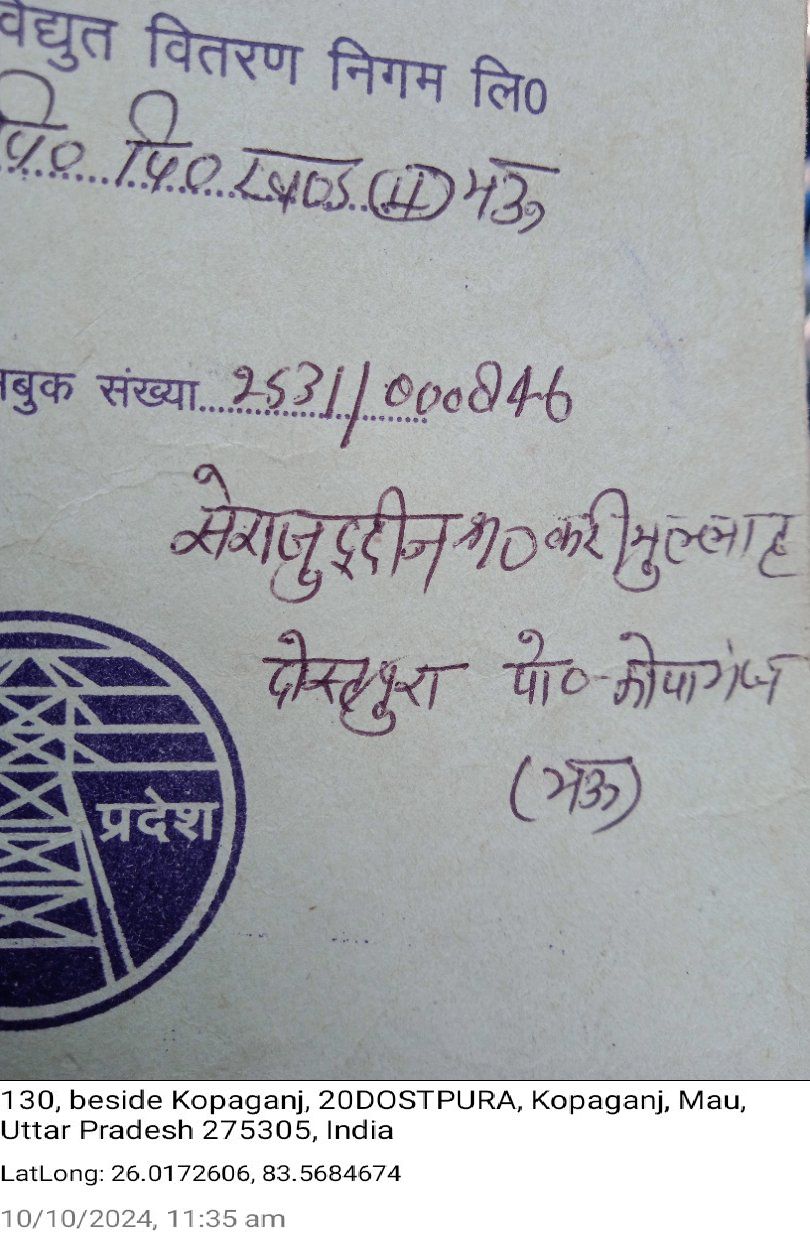 विद्युत वितरण निगम लि०
वि० वि० खण्ड (II) मऊ
बुक संख्या 2531/000846
सेराजुद्दीन S/० करीमुल्लाह
दोस्तपुरा पो०-कोपागंज
(मऊ)
प्रदेश
130, beside Kopaganj, 20DOSTPURA, Kopaganj, Mau,
Uttar Pradesh 275305, India
LatLong: 26.0172606, 83.5684674
10/10/2024, 11:35 am